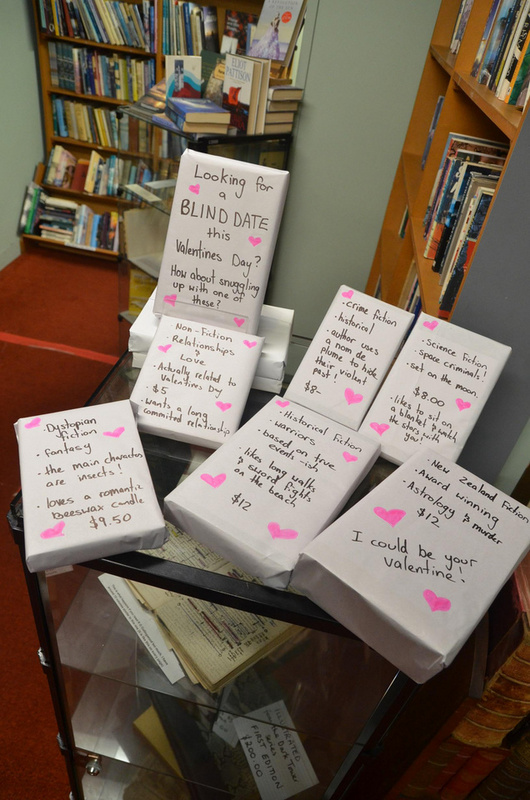 ELIOT
PATTISON
Looking for
a
BLIND DATE
this
Valentines Day?
How about snuggling
up with one of
these?
Non-Fiction
. Relationships
&
Love.
. Actually related to
Valentines Day
. $5
. wants a long
committed relationship
. crime fiction
. historical
. author uses
a nom de
plume to hide
their violent
past!
$8-
. Science fiction
. space criminals!
. set on the moon.
$8.00
. likes to sit on
a blanket & watch
the stars with
you!
. Dystopian
fiction
. fantasy
. the main characters
are insects!
. loves a romantic
Beeswax candle
$9.50
. Historical fiction
. warriors
. based on true
events -ish
. likes long walks
& sword fights
on the beach
$12
. New Zealand Fiction
. Award winning
. Astrology & murder
$12
I could be your
valentine!
ILLUSTRATED
FIRST EDITION
$200.00